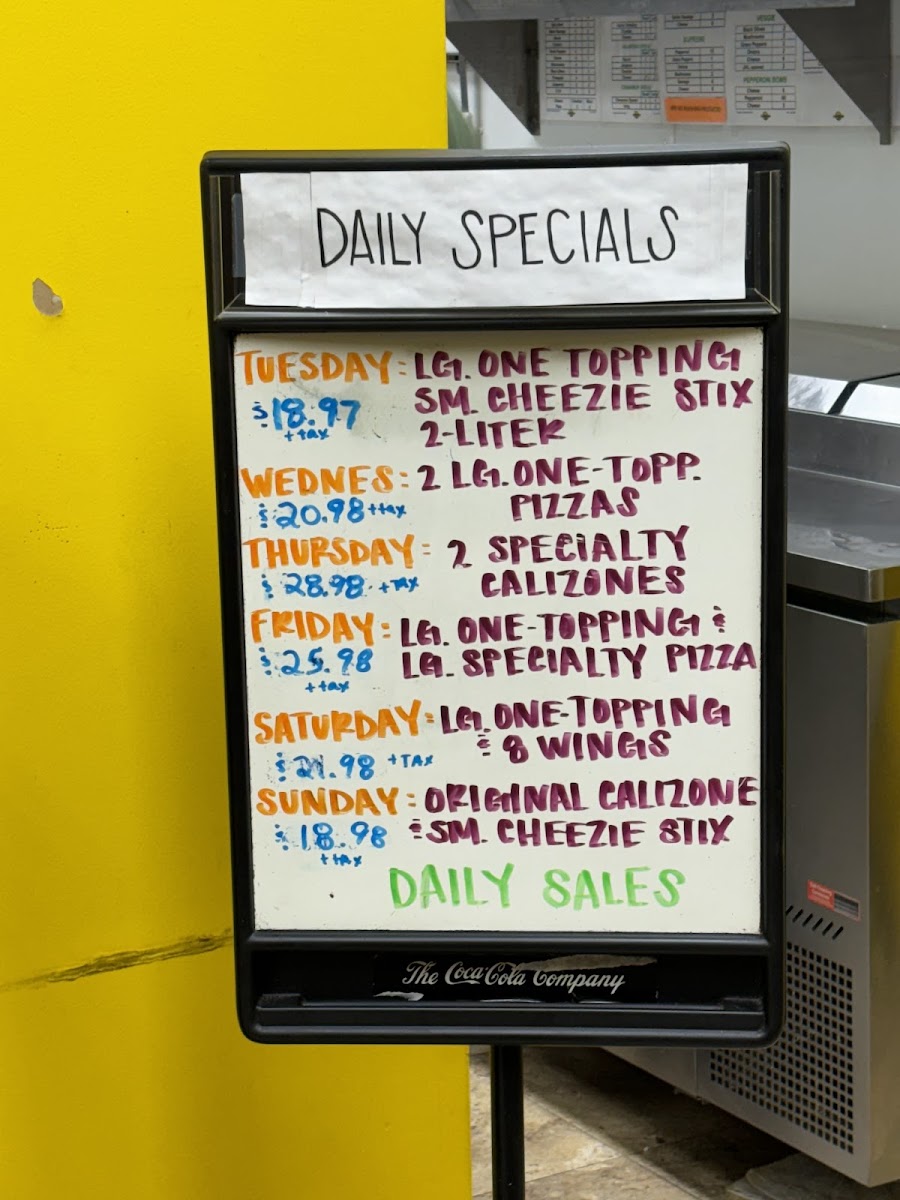 VEGGIE
SUPREME
PEPPERONI BOMB
DAILY SPECIALS
TUESDAY: LG. ONE TOPPING
$18.97 SM. CHEEZIE STIX
+tax 2-LITER
WEDNES: 2 LG. ONE-TOPP.
$20.98 +tax PIZZAS
THURSDAY: 2 SPECIALTY
$28.98 +TAX CALIZONES
FRIDAY: LG. ONE-TOPPING &
$25.98 LG. SPECIALTY PIZZA
+tax
SATURDAY: LG. ONE-TOPPING
& 8 WINGS
$21.98 +TAX
SUNDAY: ORIGINAL CALIZONE
$18.98 & SM. CHEEZIE STIX
+tax
DAILY SALES
The Coca-Cola Company